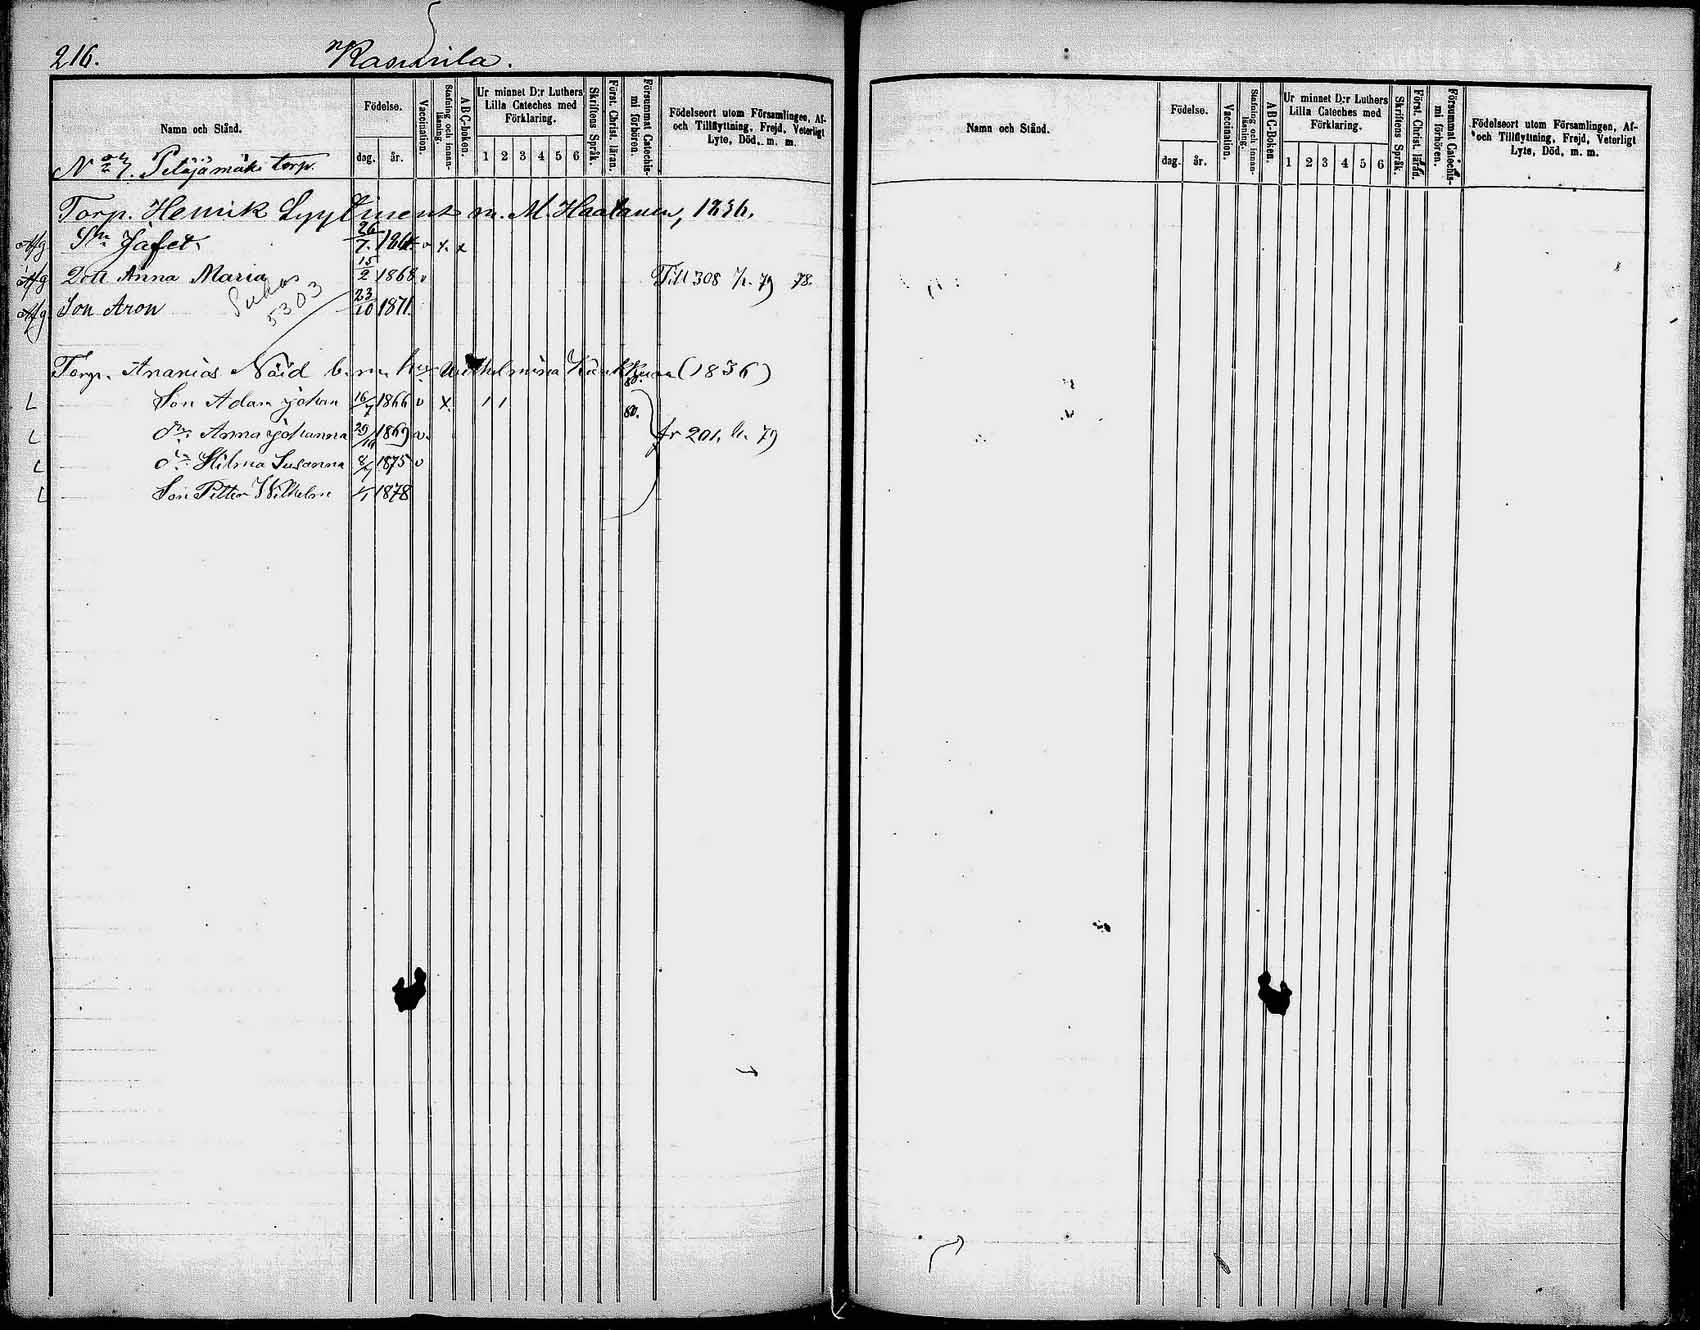 216. Rasinila.
Namn och Stånd.
Födelse.
dag. år.
Vaccination.
Stafning och innan-läsning.
ABC-boken.
Ur minnet D:r Luthers
Lilla Cateches med
Förklaring.
1 2 3 4 5 6
Skriftens Språk.
Först. Christ. läran.
Försummat Catechis-
mi förhören.
Födelseort utom Församlingen, Af-
och Tillflyttning, Frejd, Veterligt
Lyte, Död, m. m.
torp.
Torp. Henrik Lyytinens m. M. Haatanen, 1836.
Afg Sn Jafet 26/7 1864 v x x
Afg Dott Anna Maria 15/2 1868 v Till 308 h. 79 78.
Afg Son Aron 23/10 1871
5303
Torp. Ananias b. m. h. Wilhelmina (1836)
L Son Adam Johan 16/7 1866 v x 1 1 80.
L Anna Johanna 29/10 1869 v. fr 201. h. 79
L Hilma Susanna 1875 v
L Son Petter Wilhelm 1/1 1878
Namn och Stånd.
Födelse.
dag. år.
Vaccination.
Stafning och innan-läsning.
ABC-Boken.
Ur minnet D:r Luthers
Lilla Cateches med
Förklaring.
1 2 3 4 5 6
Skriftens Språk.
Först. Christ. lärad.
Försummat Catechis-
mi förhören.
Födelseort utom Församlingen, Af-
och Tillflyttning, Frejd, Veterligt
Lyte, Död, m. m.